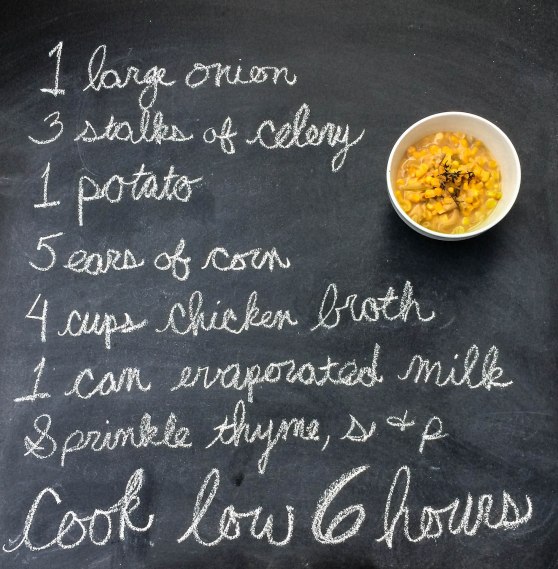 1 large onion
3 stalks of celery
1 potato
5 ears of corn
4 cups chicken broth
1 can evaporated milk
Sprinkle thyme, s + p
Cook low 6 hours